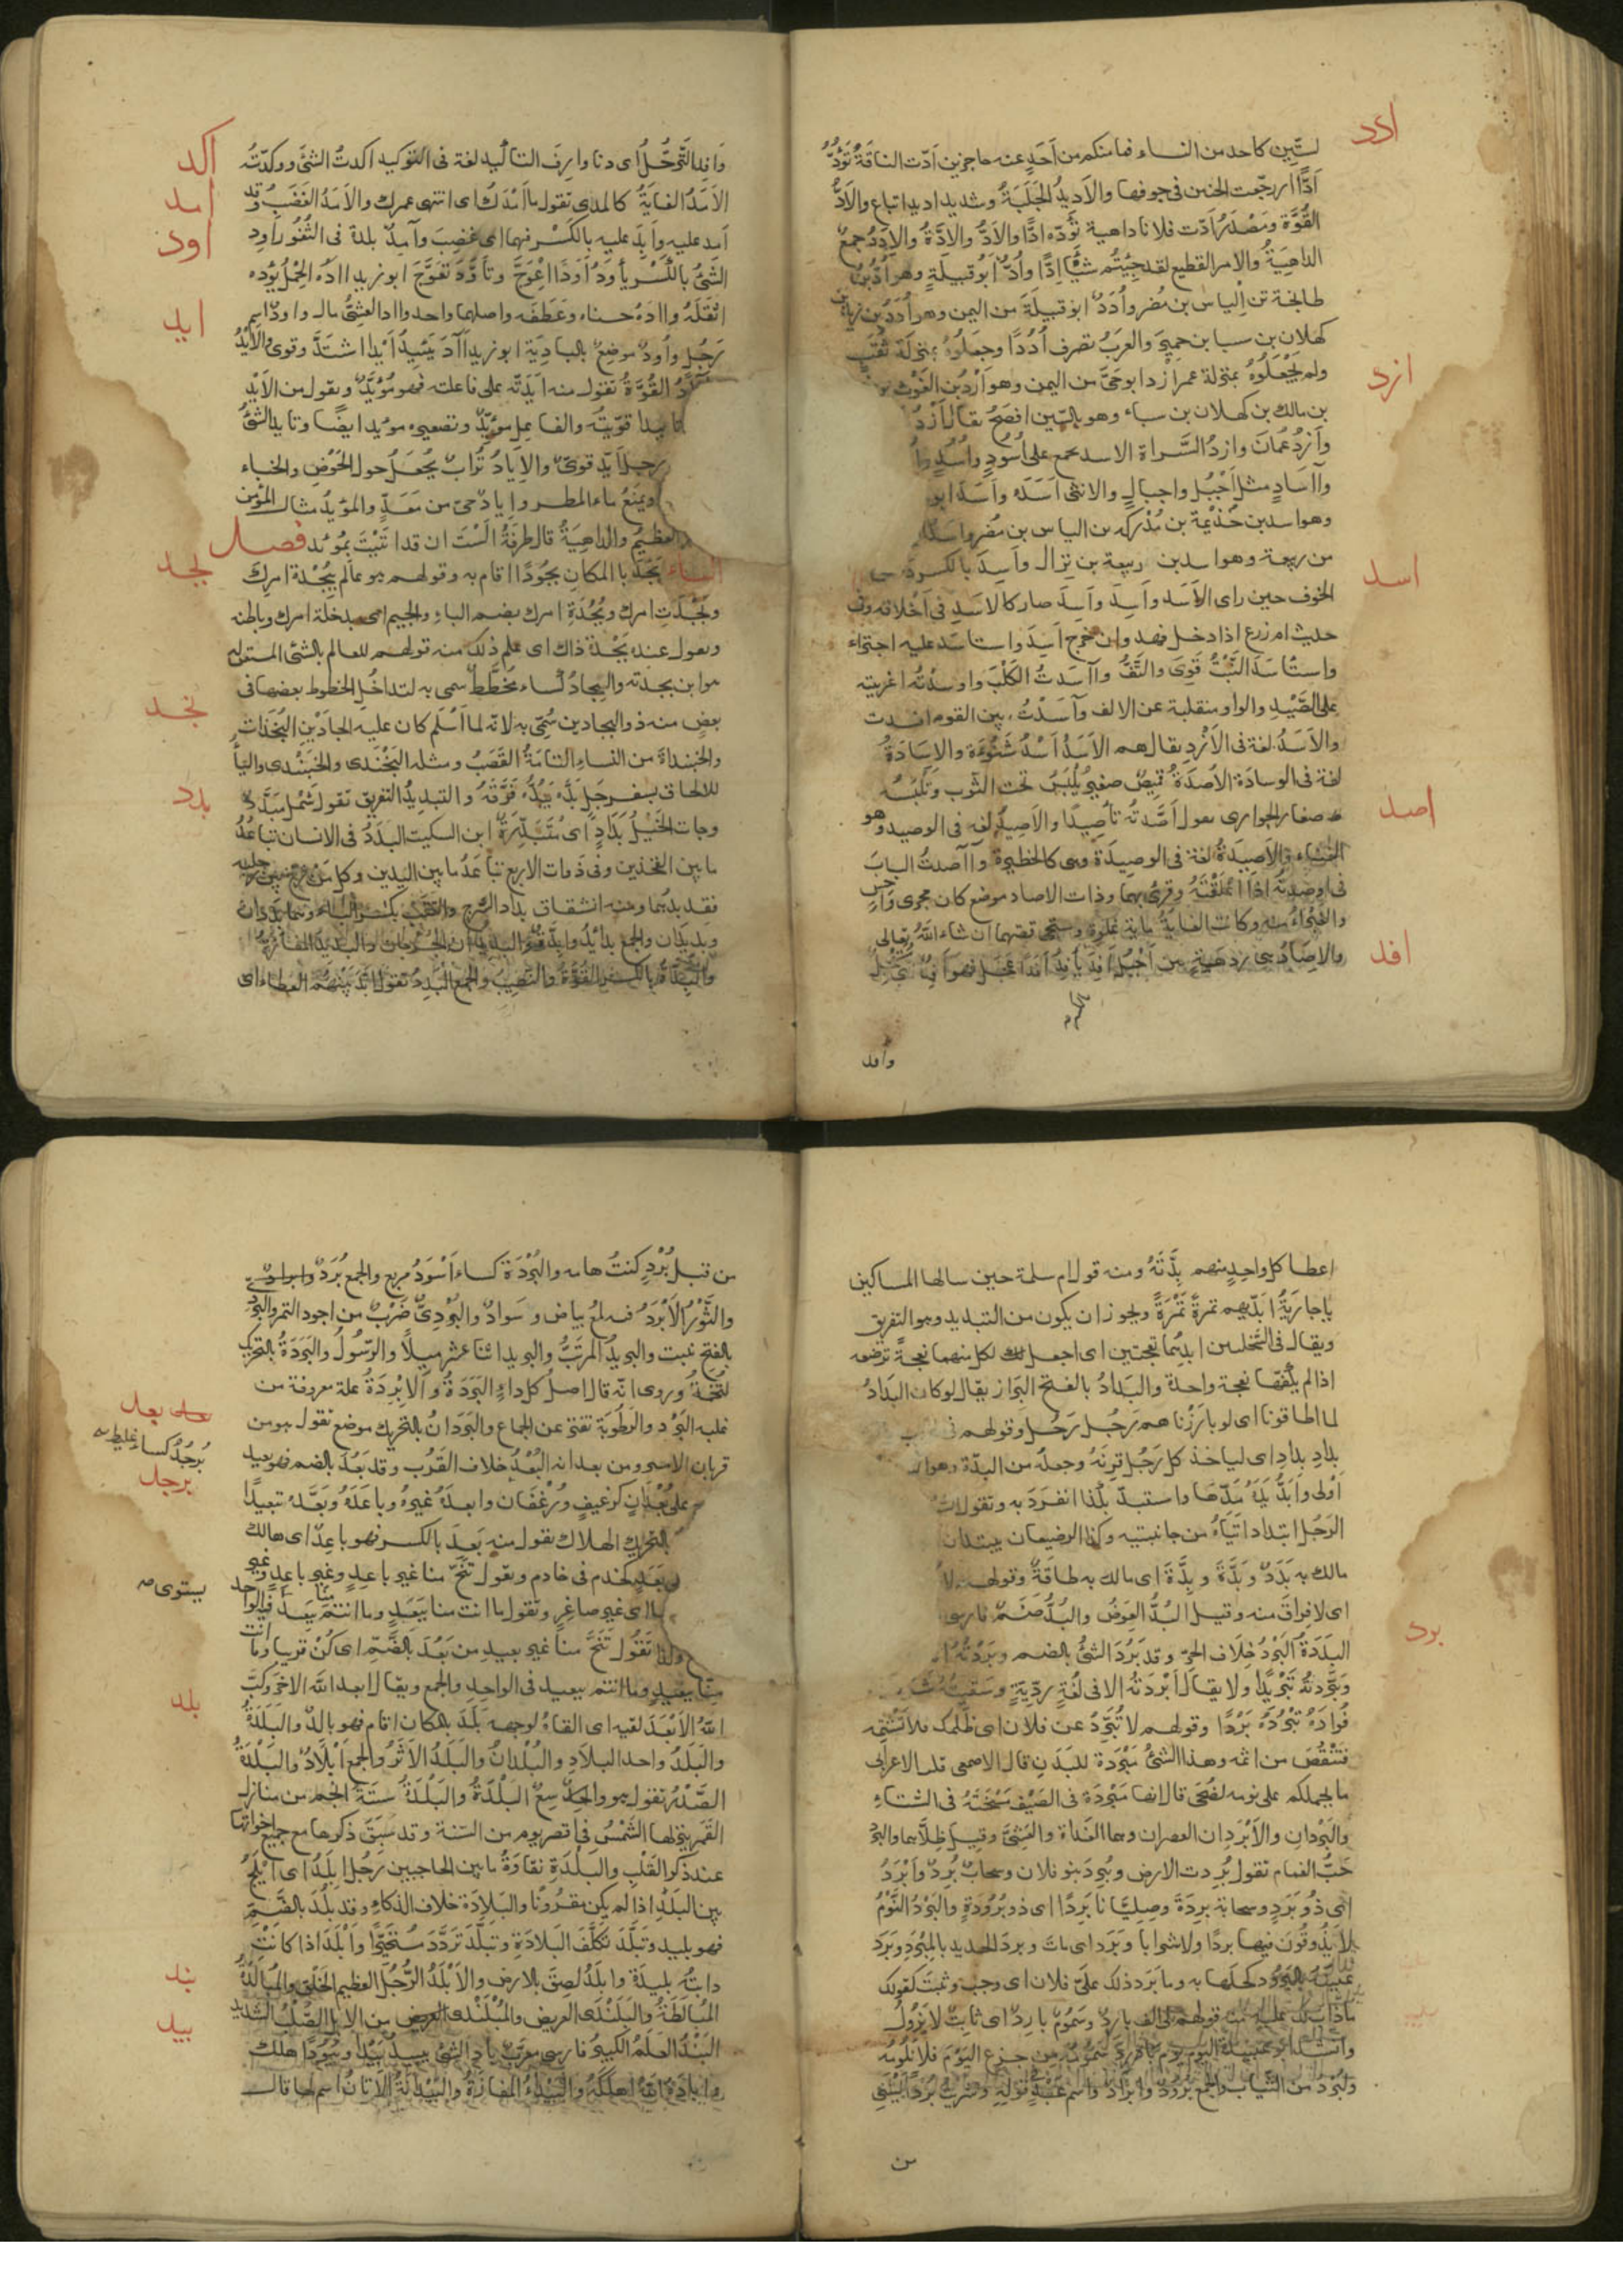 ادد
لستين كاحد من النساء فما منكم من أحد عنه حاجزين أدّت الناقة تؤدّ
أدًّا اى رجّعت الحنين فى جوفها والأديد الجلبة وشديد اديد اتباع والأدّ
القوّة ومصدر أدّت فلانا داهية تؤدّه ادًّا والادّ والادّة والإدد جمع
الداهية والامر الفظيع لقد جئتم شيأ إدًّا وأدّ ابو قبيلة وهو أدّ بن
طابخة بن إلياس بن مضر وأدد ابو قبيلة من اليمن وهو أدد بن زيد بن
كهلان بن سبا بن حمير والعرب تصرف أددا وجعلوه بمنزلة ثقب
ولم يجعلوه بمنزلة عمر أزد ابو حىّ من اليمن وهو أزد بن الغوث بن
ازد
بن مالك بن كهلان بن سباء وهو بالسّين افصح يقال أزد
وأزد عمان وازد السّراة الاسد يجمع على أسود وأسد
وآساد مثل أجبل واجبال والانثى أسدة وأسد ابو
وهو اسد بن خذيمة بن مدركه بن الياس بن مضر واسد
من ربيعة وهو اسد بن ربيعة بن نزال وأسد بالكسر
اسد
الخوف حين راى الأسد وأسد وأسد صار كالاسد فى أخلاقه وفى
حديث ام زرع اذا دخل فهد وان خرج أسد واستاسد عليه اجتراء
واستأسد النّبت قوى والتفّ وآسدت الكلب واوسدته اغريته
على الصّيد والواو منقلبة عن الالف وآسدت بين القوم افسدت
والأسد لغة فى الأزد يقال هم الأسد أسد شنوءة والاسادة
لغة فى الوسادة الأصدة قميص صغير يلبس تحت الثّوب وتلبسه
اصد
صغار الجوارى تقول أصّدته تأصيدا والأصيد لغة فى الوصيد وهو
الفناء والأصيدة لغة فى الوصيدة وهى كالحظيرة وآصدت الباب
فى اوصدته اذا اغلقته وقرئ بهما وذات الاصاد موضع كان مجرى داحس
والغبراء منه وكانت الغاية ماية غلوة وستجئ قصتهما ان شاء الله تعالى
افد
والإصاد هى ردهة بين أجبل أفد يأفد أفدا عجل فهو أفد
وافد
اكد
وأفد الترحّل اى دنا وازف التاكيد لغة فى التوكيد اكدت الشئ ووكدته
امد
الأمد الغاية كالمدى تقول ما أمدك اى انتهى عمرك والأمد الغضب وقد
اود
أمد عليه وأبد عليه بالكسر فيهما اى غضب وآمد بلدة فى الثغور أود
الشئ بالكسر يأود أودا اعوجّ وتأوّد تعوّج ابو زيد آده الحمل يؤده
ايد
اثقله وآده حناه وعطفه واصلهما واحد وآد العشىّ مال واود اسم
رجل وأود موضع بالبادية ابو زيد آد يئيد أيدا اشتدّ وقوى والأيد
القوّة تقول منه أيّدته على فاعلته فهو مؤيد وتقول من الأيد
تاييدا قوّيته والفاعل مؤيّد وتصغيره مويد ايضا وتايد الشئ
رجل أيّد قوىّ والإياد تراب يجعل حول الحوض والخباء
ويمنع ماء المطر واياد حىّ من معدّ والمؤيد مثال المؤمن
العظيم والداهية قال طرفة ألست ان قد اتيت بمؤيد فصل
بجد
الباء بجد بالمكان بجودا اقام به وقولهم هو عالم ببجدة امرك
وبجدت امرك وبجدة امرك بضم الباء والجيم اى بدخلة امرك وباطنه
وتقول عنده بجدة ذاك اى علم ذلك منه قولهم للعالم بالشئ المتقن له
هو ابن بجدته والبجاد كساء مخطّط سمى به لتداخل الخطوط بعضها فى
بخد
بعض منه ذو البجادين سمّى به لانه لما أسلم كان عليه البجادين البخندات
والخبنداة من النساء التامة القصب ومثله البخندى والخبندى والياء
بدد
للالحاق بسفرجل بدّه يبدّه فرّقه والتبديد التفريق تقول شمل مبدّد
وجات الخيل بداد اى متبدّدة ابن السكيت البدد فى الانسان تباعد
ما بين الفخذين وفى ذوات الاربع تباعد ما بين اليدين وكل من فرّج بين رجليه
فقد بدّهما ومنه اشتقاق بداد السّرج والقتب بكسر الباء وهما بدادان
وبديدان والجمع بدايد وابدّة والبديدان الخرجان والبديد المفازة
والبدّة بالكسر القوّة والنصيب والجمع البدد تقول ابدّ بينهم العطاء اى
اعطا كل واحد منهم بدّته ومنه قول ام سلمة حين سالها المساكين
يا جارية ابدّيهم تمرة تمرة ويجوز ان يكون من التبديد وهو التفريق
ويقال فى السّخلين ابدّهما نعجتين اى اجعل لكل منهما نعجة ترضعه
اذا لم يكفهما نعجة واحدة والبداد بالفتح البراز يقال لو كان البداد
لما اطاقونا اى لو بارزناهم رجل رجل وقولهم فى
بداد بداد اى لياخذ كل رجل قرنه وجعله من البدّة
أولى وأبدّ يده مدّها واستبدّ بكذا انفرد به وتقول
الرجل ابتدادا اتياه من جانبيه وكذا الرضيعان يبتدان
مالك به بدد وبدّة وبدّة اى مالك به طاقة وقولهم لا
اى لا فراق منه وقيل البدّ العوض والبدّ صنم فارسى
برد
البددة البرد خلاف الحرّ وقد برد الشئ بالضم وبردته
وبرّدته تبريدا ولا يقال أبردته الا فى لغة رديّة وسقيته
فوأده تبرده بردا وقولهم لا تبرّد عن فلان اى ظلمك فلا تشتمه
فتنقص من اثمه وهذا الشئ مبردة للبدن قال الاصمعى قلت لاعرابى
ما يحملكم على نومة الضحى قال انها مبردة فى الصيف مسخنة فى الشتاء
والبردان والأبردان العصران وهما الغداة والعشىّ وقيل ظلّاهما والبرد
حبّ الغمام تقول بردت الارض وبرد بنو فلان وسحاب برد وأبرد
اى ذو برد وسحابة بردة وصلّيانا بردا اى ذو برودة والبرد النّوم
لا يذوقون فيها بردا ولا شرابا وبرد اى مات وبرد الحديد بالمبرد وبرد
عينه بالبرود كحلها به وما برد ذلك علىّ فلان اى وجب وثبت كقولك
ما ذاب لك عليه منه قولهم لى الف بارد وسموم بارد اى ثابت لا يزول
وانشد ابو عبيدة اليوم يوم بارد سمومه من جزع اليوم فلا تلومه
والبرد من الثياب والجمع برود وأبراد واسم عبد قوله وشريت بردا ليتنى
من
من قبل برد كنت هامه والبردة كساء أسود مربع والجمع برد
والثّور الأبرد فيه لمع بياض وسواد والبردىّ ضرب من اجود التمر والبردى
بالفتح نبت والبريد المرتّب والبريد اثنا عشر ميلا والرّسول والبردة بالتحريك
التّخمة وروى انّه قال اصل كل داء البردة والإبردة علة معروفة من
غلبه البرد والرّطوبة تفتّر عن الجماع والبردان بالتحريك موضع تقول هو من
برجد كساء غليظ
برجد
قربان الامير ومن بعدانه البعد خلاف القرب وقد بعد بالضم فهو بعيد
على بعدان كرغيف ورغفان وابعده غيره وباعده وبعّده تبعيدا
بالتحريك الهلاك تقول منه بعد بالكسر فهو باعد اى هالك
بعد كخدم فى خادم وتقول تنحّ منا غير باعد وغير بعد وغير
يستوى
اى غير صاغر وتقول ما انت منا ببعد وما انتم منا ببعد فى الواحد
وكذا تقول تنحّ منا غير بعيد من بعد بالضّم اى كن قريبا وما انت
منا ببعيد وما انتم ببعيد فى الواحد والجمع ويقال ابعد الله الاخر وكبّ
بلد
الله الأبعد لفيه اى القاه لوجهه بلد بالمكان اقام فهو بالد والبلدة
والبلد واحد البلاد والبلدان والبلد الأثر والجمع أبلاد والبلدة
الصّدر تقول هو واسع البلدة والبلدة ستة انجم من منازل
القمر ينزلها الشمس فى اقصر يوم من السّنة وقد سبق ذكرها مع جميع اخواتها
عند ذكر القلب والبلدة نقاوة ما بين الحاجبين رجل ابلد اى أبلج
بين البلد اذا لم يكن مقرونا والبلادة خلاف الذكاء وقد بلد بالضّم
فهو بليد وتبلّد تكلّف البلادة وتبلّد تردّد متحيّرا وأبلد اذا كانت
بند
دابته بليدة وابلد لصق بالارض والأبلد الرّجل العظيم الخلق والمبالدة
المبالطة والبلندى العريض والمبلندى من الابل الصّلب الشديد
بيد
البند العلم الكبير فارسى معرّب باد الشئ يبيد بيدا وبيودا هلك
وابادة الله اهلكه والبيداء المفازة والبيدانة الاتان اسم لها قال